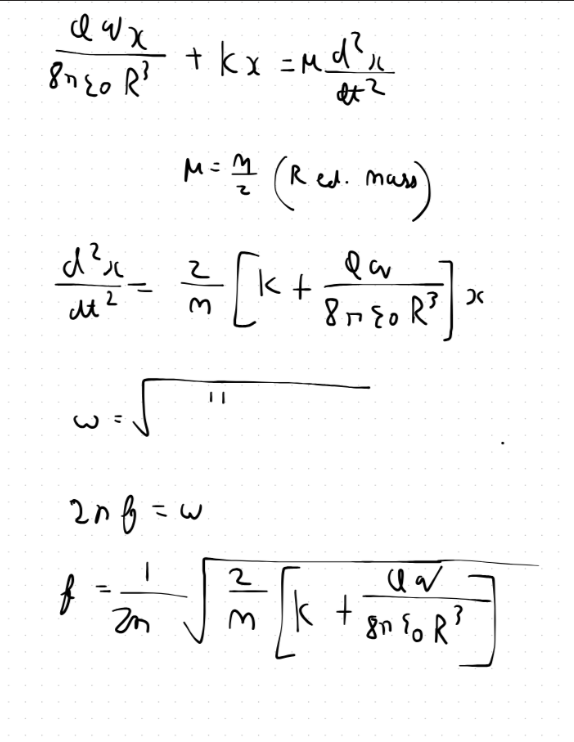 QqVx/8πε0R³ + kx = μ d²x/dt²
μ = m/2 (Red. mass)
d²x/dt² = 2/m [k + Qq/8πε0R³] x
ω = √ "
2πf = ω
f = 1/2π √ 2/m [k + Qq/8πε0R³]